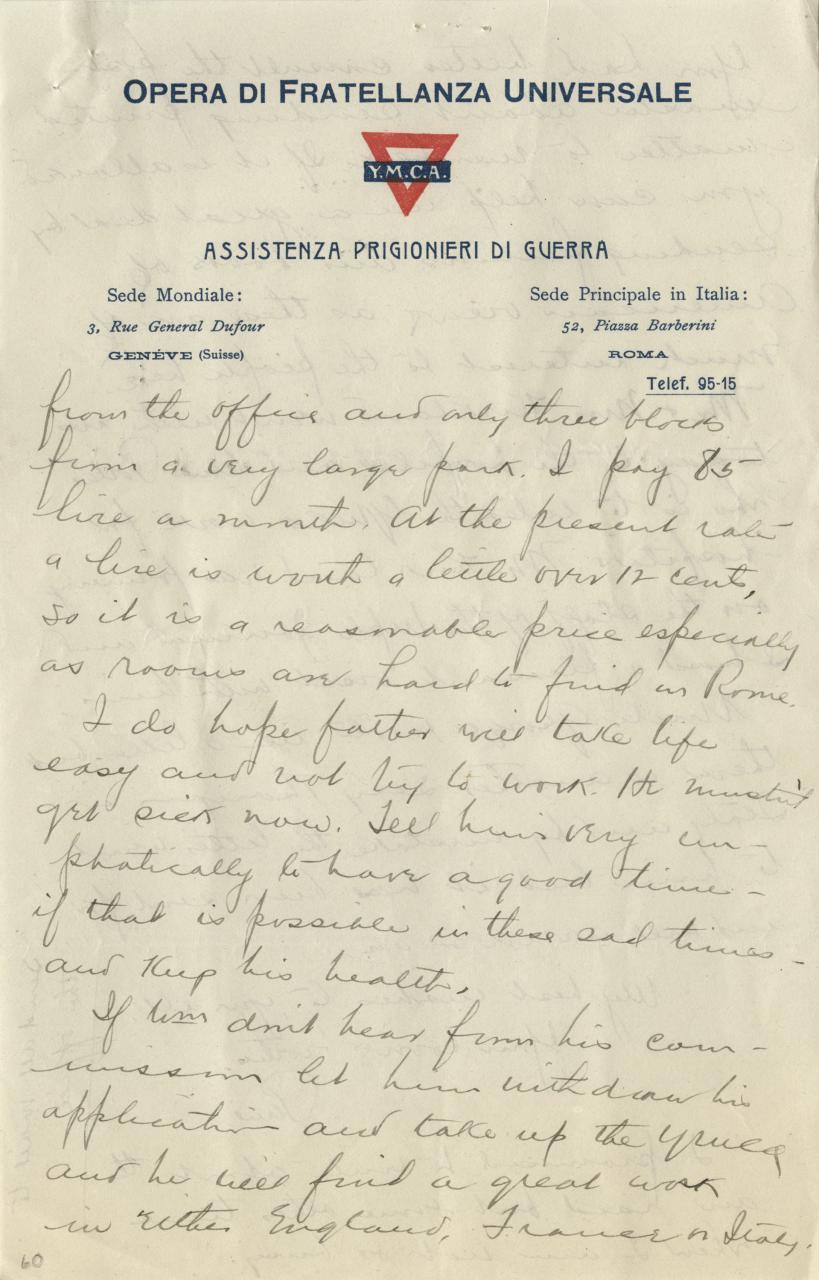 OPERA DI FRATELLANZA UNIVERSALE
Y.M.C.A.
ASSISTENZA PRIGIONIERI DI GUERRA
Sede Mondiale:
3, Rue General Dufour
GENÉVE (Suisse)
Sede Principale in Italia:
52, Piazza Barberini
ROMA
Telef. 95-15
from the office and only three blocks
from a very large park. I pay 85
lire a month. At the present rate
a lire is worth a little over 12 cents,
so it is a reasonable price especially
as rooms are hard to find in Rome.
I do hope father will take life
easy and not try to work. He mustn't
get sick now. Tell him very em-
phatically to have a good time -
if that is possible in these sad times -
and keep his health.
If Wm don't hear from his com-
mission let him withdraw his
application and take up the YMCA
and he will find a great work
in either England, France or Italy.
60